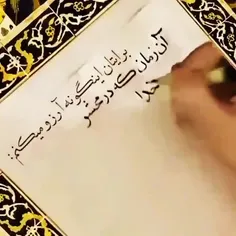 برایتان اینگونه آرزو میکنم:
آن زمان که در محشر
خدا